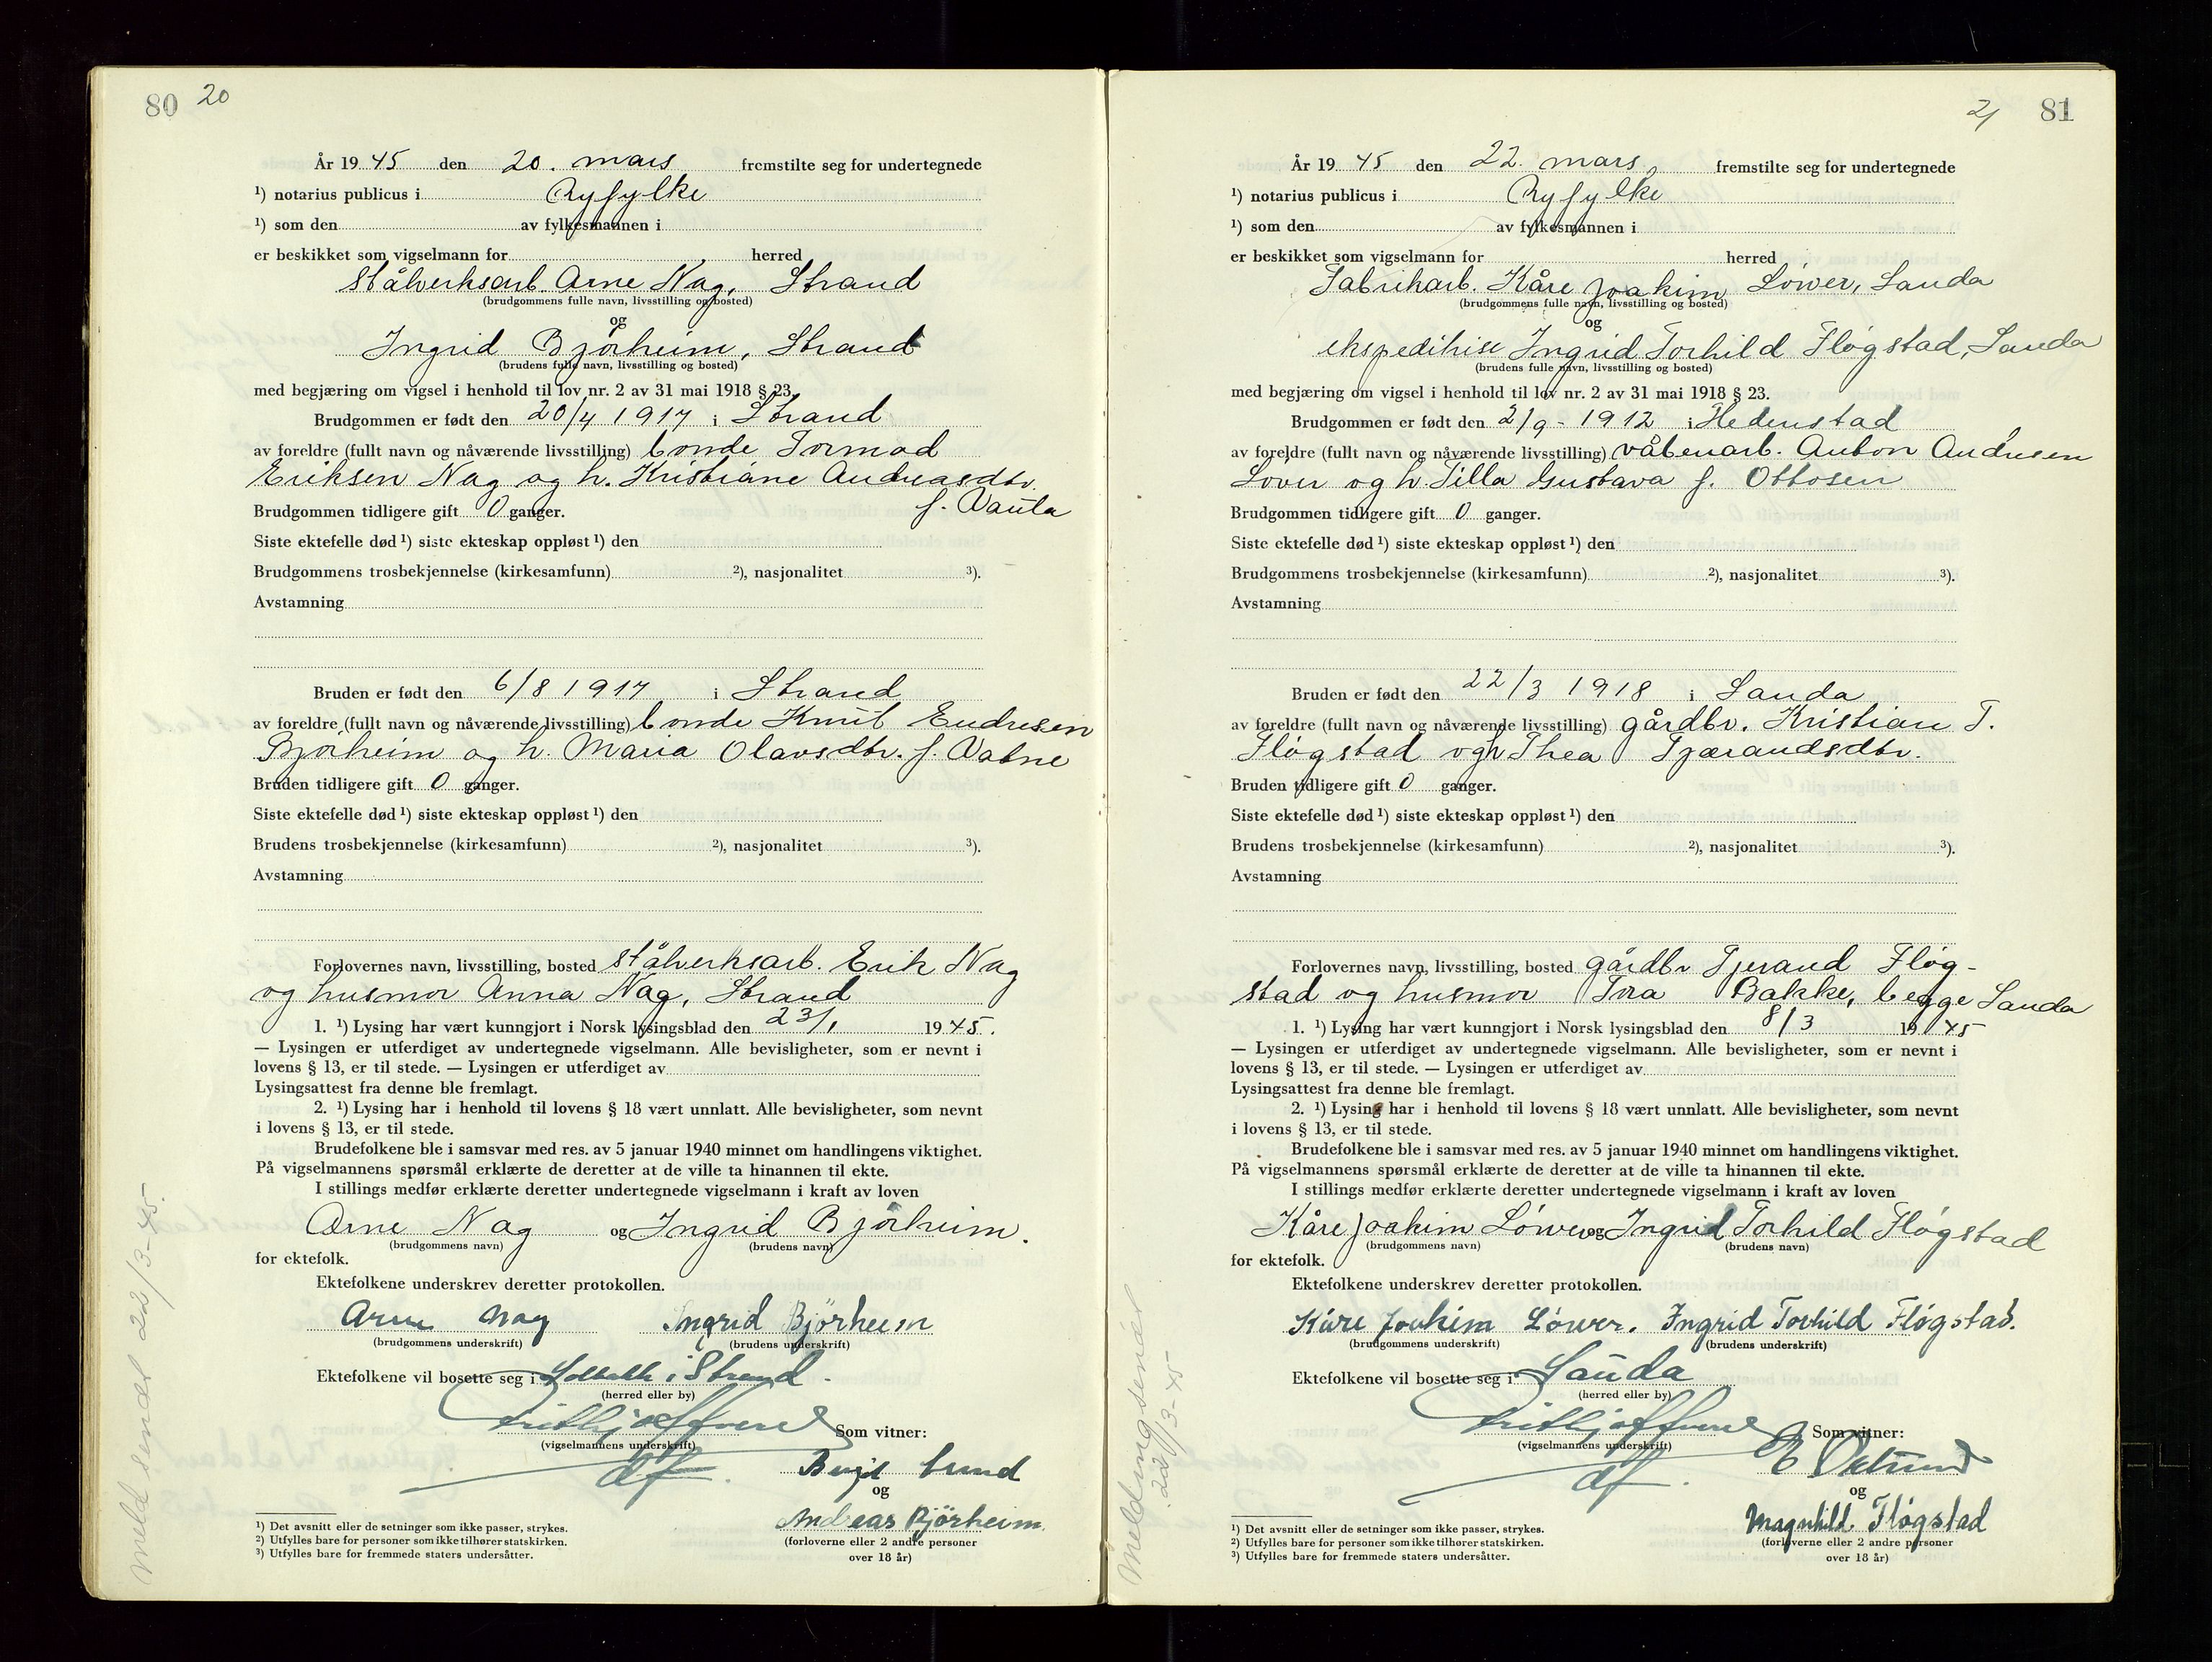 80 20
År 19 45 den 20. mars fremstilte seg for undertegnede
¹) notarius publicus i Ryfylke
¹) som den av fylkesmannen i
er beskikket som vigselmann for herred
Stålverksarb. Arne Nag, Strand
(brudgommens fulle navn, livsstilling og bosted)
og
Ingrid Bjørheim, Strand
(brudens fulle navn, livsstilling og bosted)
med begjæring om vigsel i henhold til lov nr. 2 av 31 mai 1918 § 23.
Brudgommen er født den 20/4 1917 i Strand
av foreldre (fullt navn og nåværende livsstilling) bonde Tormod
Eriksen Nag og h. Kristiane Andreasdtr.
f. Vaula
Brudgommen tidligere gift 0 ganger.
Siste ektefelle død ¹) siste ekteskap oppløst ¹) den
Brudgommens trosbekjennelse (kirkesamfunn) ²), nasjonalitet ³).
Avstamning
Bruden er født den 6/8 1917 i Strand
av foreldre (fullt navn og nåværende livsstilling) bonde Knut Endresen
Bjørheim og h. Maria Olavsdtr. f. Vatne
Bruden tidligere gift 0 ganger.
Siste ektefelle død ¹) siste ekteskap oppløst ¹) den
Brudens trosbekjennelse (kirkesamfunn) ²), nasjonalitet ³).
Avstamning
Forlovernes navn, livsstilling, bosted stålverksarb. Erik Nag
og husmor Anna Nag, Strand
1. ¹) Lysing har vært kunngjort i Norsk lysingsblad den 23/1 1945.
— Lysingen er utferdiget av undertegnede vigselmann. Alle bevisligheter, som er nevnt i
lovens § 13, er til stede. — Lysingen er utferdiget av
Lysingsattest fra denne ble fremlagt.
2. ¹) Lysing har i henhold til lovens § 18 vært unnlatt. Alle bevisligheter, som nevnt
i lovens § 13, er til stede.
Brudefolkene ble i samsvar med res. av 5 januar 1940 minnet om handlingens viktighet.
På vigselmannens spørsmål erklærte de deretter at de ville ta hinannen til ekte.
I stillings medfør erklærte deretter undertegnede vigselmann i kraft av loven
Arne Nag og Ingrid Bjørheim.
(brudgommens navn) (brudens navn)
for ektefolk.
Ektefolkene underskrev deretter protokollen.
Arne Nag Ingrid Bjørheim
(brudgommens underskrift) (brudens underskrift)
Ektefolkene vil bosette seg i i Strand.
(herred eller by)
Som vitner:
(vigselmannens underskrift)
df.
Lund
og
Andreas Bjørheim.
(forloverne eller 2 andre personer
over 18 år)
¹) Det avsnitt eller de setninger som ikke passer, strykes.
²) Utfylles bare for personer som ikke tilhører statskirken.
³) Utfylles bare for fremmede staters undersåtter.
Meld. sendt 22/3-45.
21 81
År 19 45 den 22. mars fremstilte seg for undertegnede
¹) notarius publicus i Ryfylke
¹) som den av fylkesmannen i
er beskikket som vigselmann for herred
Fabrikarb. Kåre Joakim Løwer, Sauda
(brudgommens fulle navn, livsstilling og bosted)
og
ekspeditrise Ingrid Torhild Fløgstad, Sauda
(brudens fulle navn, livsstilling og bosted)
med begjæring om vigsel i henhold til lov nr. 2 av 31 mai 1918 § 23.
Brudgommen er født den 2/9-1912 i Hedenstad
av foreldre (fullt navn og nåværende livsstilling) våbenarb. Anton Andresen
Løver og h. Tilla Gustava f. Ottosen
Brudgommen tidligere gift 0 ganger.
Siste ektefelle død ¹) siste ekteskap oppløst ¹) den
Brudgommens trosbekjennelse (kirkesamfunn) ²), nasjonalitet ³).
Avstamning
Bruden er født den 22/3 1918 i Sauda
av foreldre (fullt navn og nåværende livsstilling) gårdbr. Kristian T.
Fløgstad og h Thea Tjærandsdtr.
Bruden tidligere gift 0 ganger.
Siste ektefelle død ¹) siste ekteskap oppløst ¹) den
Brudens trosbekjennelse (kirkesamfunn) ²), nasjonalitet ³).
Avstamning
Forlovernes navn, livsstilling, bosted gårdbr Tjerand Fløg-
stad og husmor Tora Bakke, begge Sauda
1. ¹) Lysing har vært kunngjort i Norsk lysingsblad den 8/3 1945
— Lysingen er utferdiget av undertegnede vigselmann. Alle bevisligheter, som er nevnt i
lovens § 13, er til stede. — Lysingen er utferdiget av
Lysingsattest fra denne ble fremlagt.
2. ¹) Lysing har i henhold til lovens § 18 vært unnlatt. Alle bevisligheter, som nevnt
i lovens § 13, er til stede.
Brudefolkene ble i samsvar med res. av 5 januar 1940 minnet om handlingens viktighet.
På vigselmannens spørsmål erklærte de deretter at de ville ta hinannen til ekte.
I stillings medfør erklærte deretter undertegnede vigselmann i kraft av loven
Kåre Joakim Løwer og Ingrid Torhild Fløgstad
(brudgommens navn) (brudens navn)
for ektefolk.
Ektefolkene underskrev deretter protokollen.
Kåre Joakim Løwer. Ingrid Torhild Fløgstad.
(brudgommens underskrift) (brudens underskrift)
Ektefolkene vil bosette seg i Sauda
(herred eller by)
Som vitner:
(vigselmannens underskrift)
df.
og
Magnhild Fløgstad
(forloverne eller 2 andre personer
over 18 år)
¹) Det avsnitt eller de setninger som ikke passer, strykes.
²) Utfylles bare for personer som ikke tilhører statskirken.
³) Utfylles bare for fremmede staters undersåtter.
Melding sendt
22/3-45